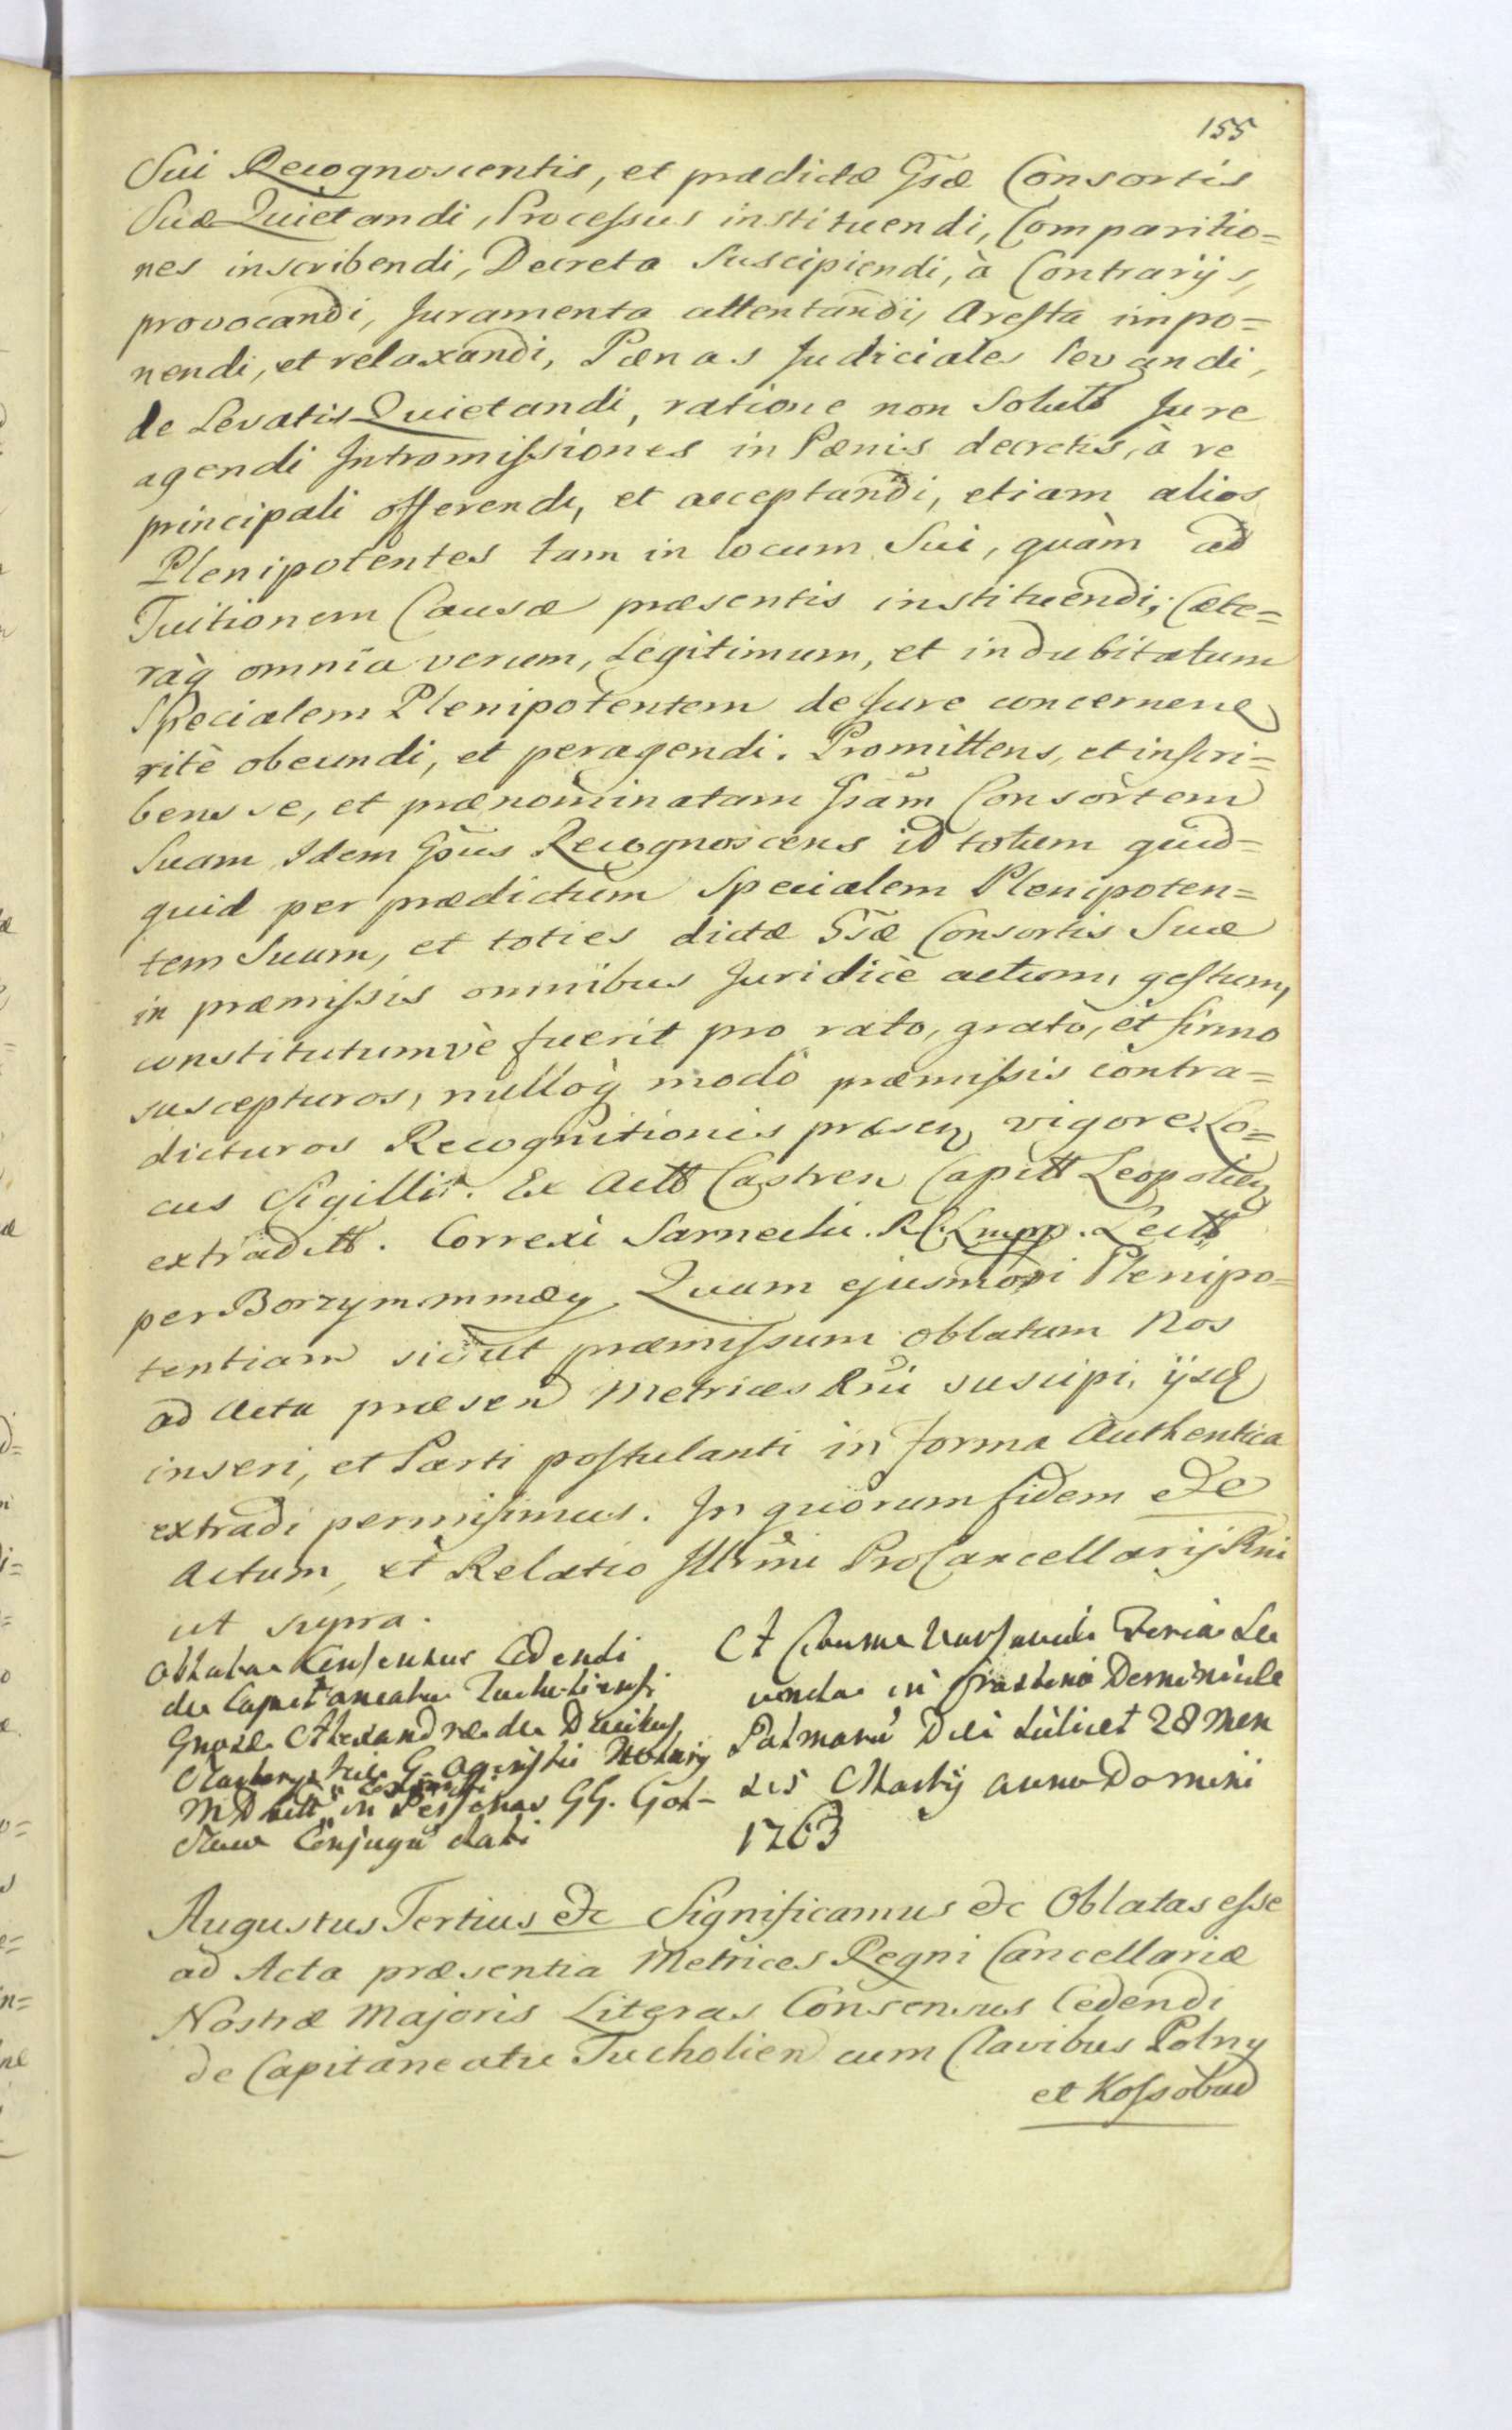 155
Sui Recognoscentis, et prædictæ Gsæ Consortis
Suæ Quietandi, Processus instituendi, Comparitio=
nes inscribendi, Decreta Suscipiendi, à Contrarijs,
provocandi, Juramenta attentandi, Aresta impo=
nendi, et relaxandi, Pœnas Judiciales levandi,
de Levatis Quietandi, ratione non Solutt Jure
agendi Intromissiones in Pœnis decretis, à re
principali offerendi, et acceptandi, etiam alios
Plenipotentes tam in locum Sui, quàm ad
Tuitionem Causæ præsentis instituendi; Cæte=
ràq omnia verum, Legitimum, et indubitatum
Specialem Plenipotentem de Jure concernene
ritè obeundi, et peragendi. Promittens, et inscri=
bens se, et prænominatam Gsam Consortem
Suam Idem Gsus Recognoscens id totum quid=
quid per prædictum Specialem Plenipoten=
tem Suum, et toties dictæ Gsæ Consortis Suæ
in præmissis omnibus Juridicè actum, gestum,
constitutumvè fuerit pro rato, grato, et firmo
suscepturos, nulloq modo præmissis contra=
dicturos Recognitionis præsen vigore. Lo=
cus Sigilli. Ex Actt Castren Capitt Leopolien
extraditt. Correxi Sarnecki. Lectt
per Borzym mmæy Quam ejusmodi Plenipo=
tentiam sicut præmissum oblatum Nos
ad Acta præsen Metrices Rni suscipi, ijsq
inseri, et Parti postulanti in forma Authentica
extradi permisimus. In quorum fidem &c
Actum, et Relatio Illrmi ProCancellarij Rni
ut supra.
Oblata Consensus Cedendi
de Capitaneatu Tucholiensi
Gnosæ Alexandræ de Ducibus
Notarij
MDLitt in Personas GG. Gol=
Conjugu dati
Actum Varsaviæ Feria Se
cunda in Crastino Dominicæ
Palmaru Die scilicet 28 Men
sis Martij Anno Domini
1763
Augustus Tertius &c Significamus &c Oblatas esse
ad Acta præsentia Metrices Regni Cancellariæ
Nostræ Majoris Literas Consensus Cedendi
de Capitaneatu Tucholien cum Clavibus Polny
et Kossobud